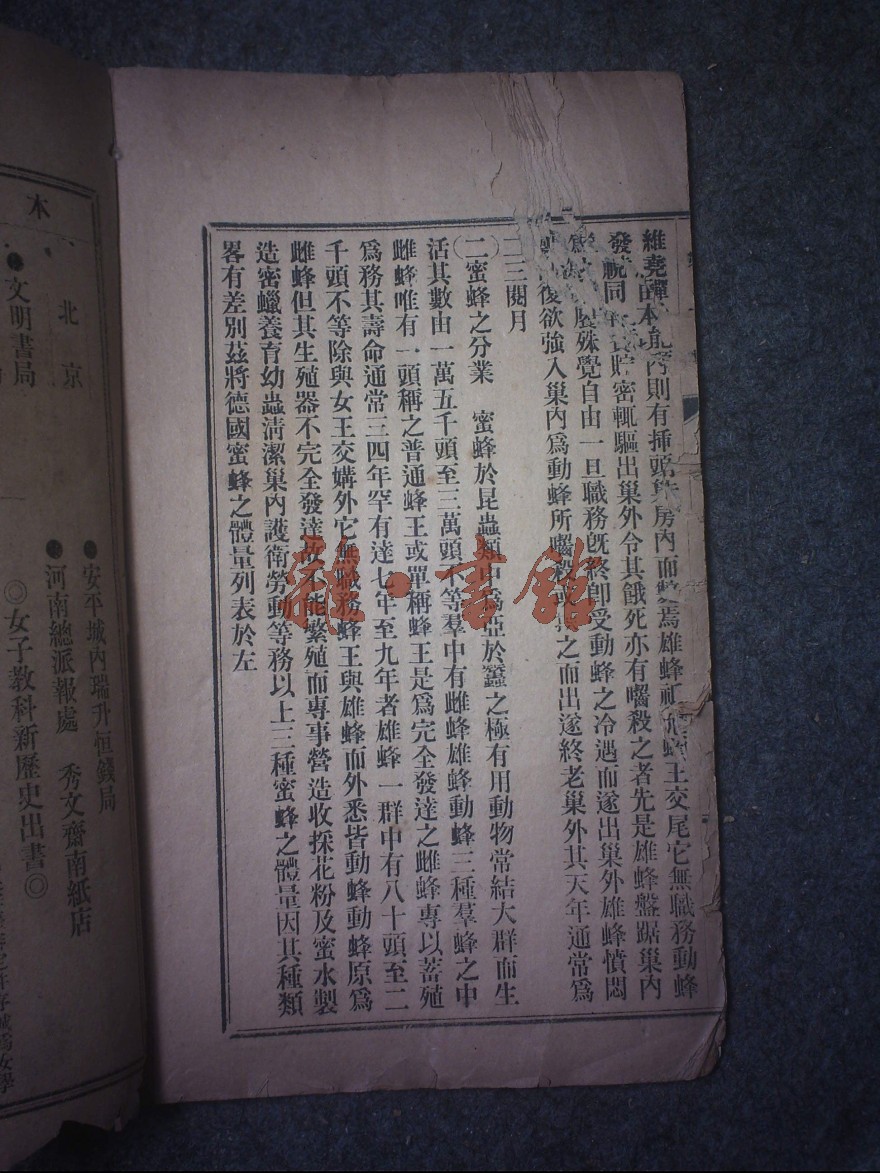 能 則有挿頭 房內而 焉雄蜂 王交尾它無職務動蜂
發 同 貯密輒驅出巢外令其餓死亦有囓殺之者先是雄蜂盤踞巢內
殊覺自由一旦職務旣終卽受動蜂之冷遇而遂出巢外雄蜂憤悶
復欲強入巢內爲動蜂所囓殺 之而出遂終老巢外其天年通常爲
二三閱月
(二)蜜蜂之分業 蜜蜂於昆蟲類中爲亞於蠶之極有用動物常結大群而生
活其數由一萬五千頭至三萬頭不等羣中有雌蜂雄蜂動蜂三種羣蜂之中
雌蜂唯有一頭稱之普通蜂王或單稱蜂王是爲完全發達之雌蜂專以蓄殖
爲務其壽命通常三四年罕有達七年至九年者雄蜂一群中有八十頭至二
千頭不等除與女王交媾外它無職務蜂王與雄蜂而外悉皆動蜂動蜂原爲
雌蜂但其生殖器不完全發達故不能繁殖而專事營造收採花粉及蜜水製
造密蠟養育幼蟲淸潔巢內護衛勞動等務以上三種蜜蜂之體量因其種類
畧有差別茲將德國蜜蜂之體量列表於左
雜·書館
木
北京
●文明書局
●安平城內瑞升恒錢局
●河南總派報處 秀文齋南紙店
◎女子教科新歷史出書◎